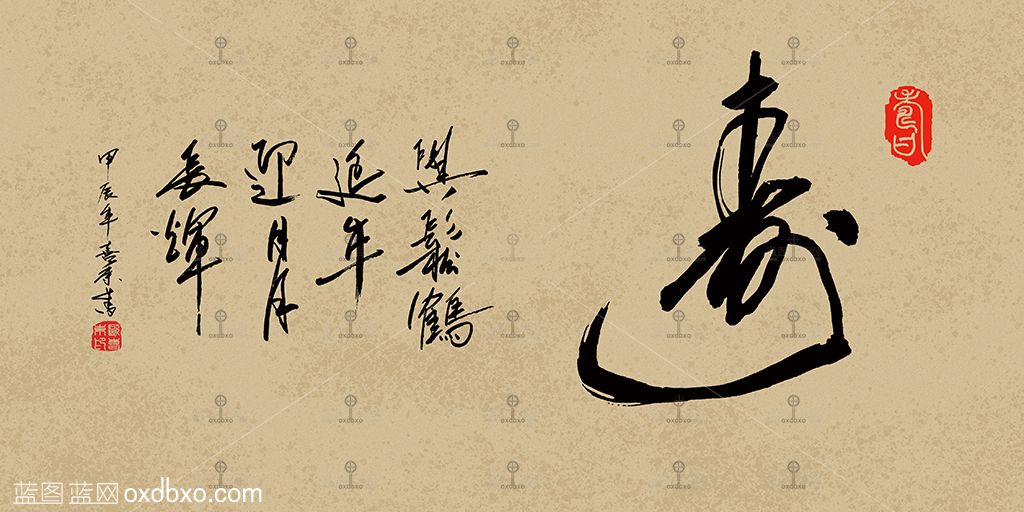 寿
與鬆鶴
延年
迎日月
長輝
甲辰年喜東書
蓝图 蓝网 oxdbxo.com